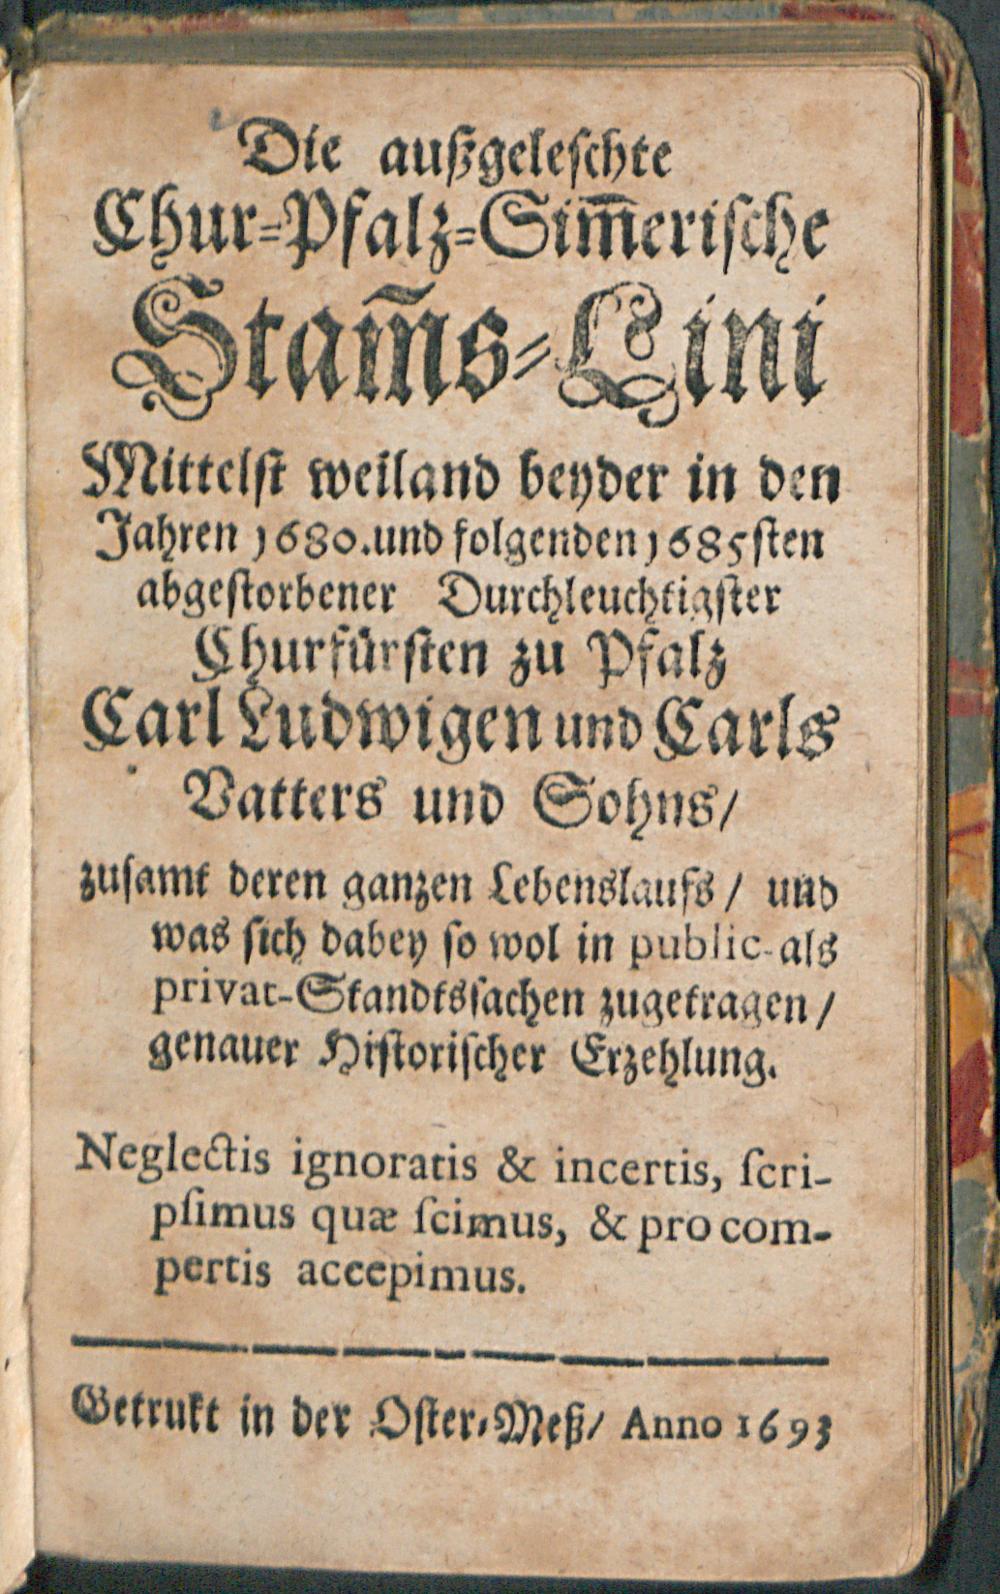 Die außgeleſchte
Chur-Pfalz-Sim̅eriſche
Stam̃s-Lini
Mittelſt weiland beyder in den
Jahren 1680. und folgenden 1685ſten
abgeſtorbener Durchleuchtigſter
Churfürſten zu Pfalz
Carl Ludwigen und Carls
Vatters und Sohns/
zuſamt deren ganzen Lebenslaufs / und
was ſich dabey ſo wol in public- als
privat-Standtsſachen zugetragen /
genauer Hiſtoriſcher Erzehlung.
Neglectis ignoratis & incertis, ſcri-
pſimus quæ ſcimus, & pro com-
pertis accepimus.
Getrukt in der Oſter-Meß/ Anno 1693